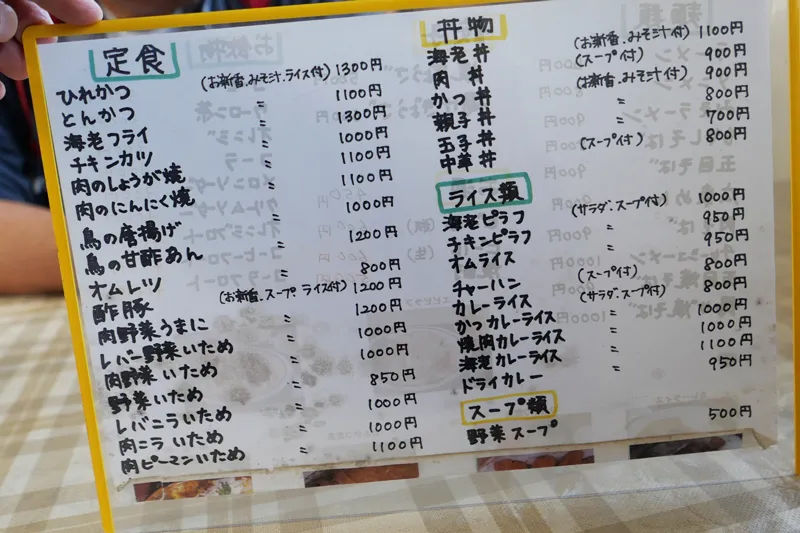 定食
ひれかつ (お新香.みそ汁.ライス付) 1300円
とんかつ 〃 1100円
海老フライ 〃 1300円
チキンカツ 〃 1000円
肉のしょうが焼 〃 1100円
肉のにんにく焼 〃 1100円
鳥の唐揚げ 〃 1000円
鳥の甘酢あん 〃 1200円
オムレツ 〃 800円
酢豚 (お新香.スープ.ライス付) 1200円
肉野菜うまに 〃 1200円
レバー野菜いため 〃 1000円
肉野菜いため 〃 1000円
野菜いため 〃 850円
レバニラいため 〃 1000円
肉ニラいため 〃 1000円
肉ピーマンいため 〃 1100円
丼物
海老丼 (お新香.みそ汁付) 1100円
肉丼 (スープ付) 900円
かつ丼 (お新香.みそ汁付) 900円
親子丼 〃 800円
玉子丼 〃 700円
中華丼 (スープ付) 800円
ライス類
海老ピラフ (サラダ.スープ付) 1000円
チキンピラフ 〃 950円
オムライス 〃 950円
チャーハン (スープ付) 800円
カレーライス (サラダ.スープ付) 800円
かつカレーライス 〃 1000円
焼肉カレーライス 〃 1000円
海老カレーライス 〃 1100円
ドライカレー 〃 950円
スープ類
野菜スープ 500円